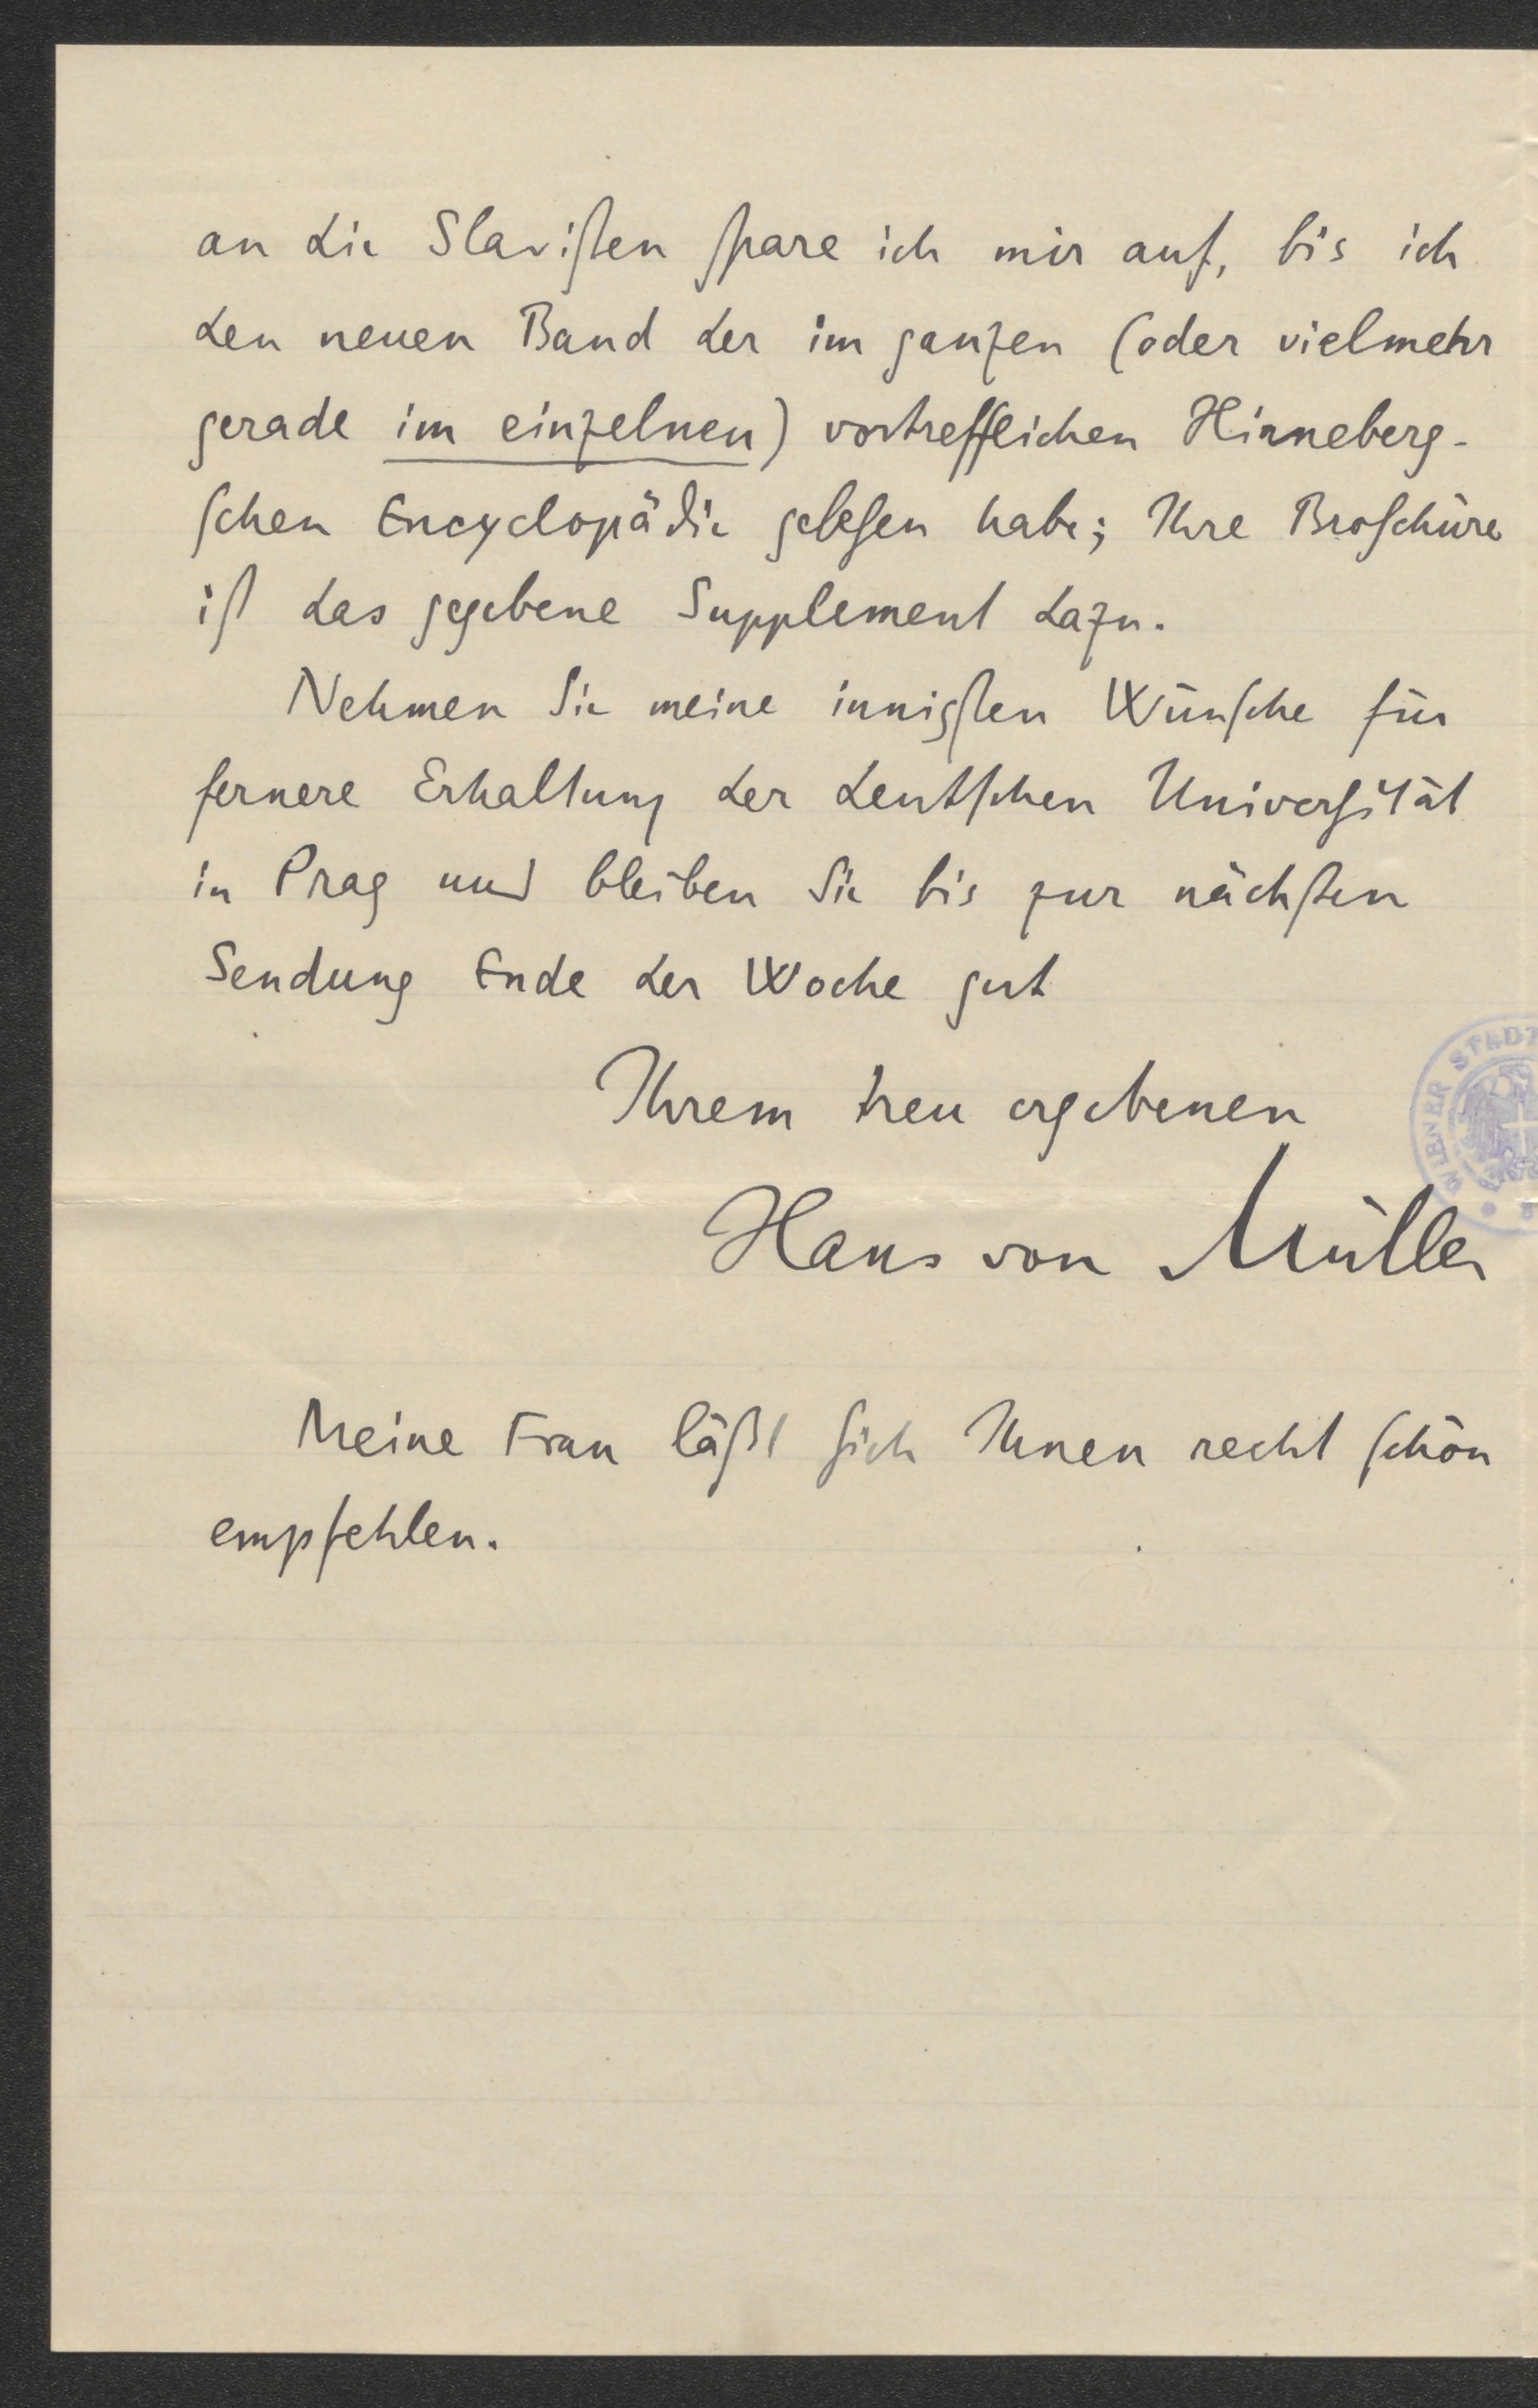 an die Slavisten spare ich mir auf, bis ich
den neuen Band der im ganzen (oder vielmehr
gerade im einzelnen) vortrefflichen Hinneberg-
schen Encyclopädie gelesen habe; Ihre Broschüre
ist das gegebene Supplement dazu.
Nehmen Sie meine innigsten Wünsche für
fernere Erhaltung der deutschen Universität
in Prag und bleiben Sie bis zur nächsten
Sendung Ende der Woche gut
Ihrem treu ergebenen
Hans von Müller
Meine Frau läßt sich Ihnen recht schön
empfehlen.
WIENER STADT